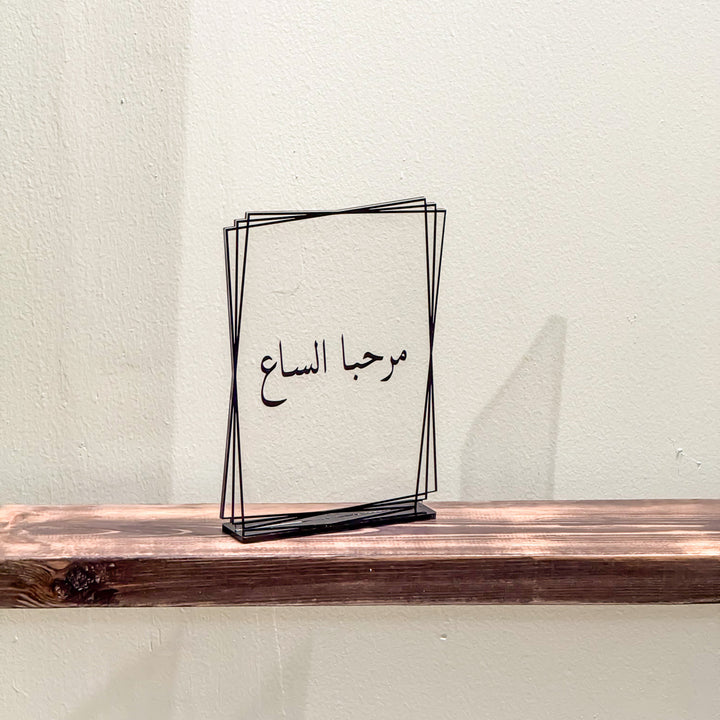 مرحبا الساع